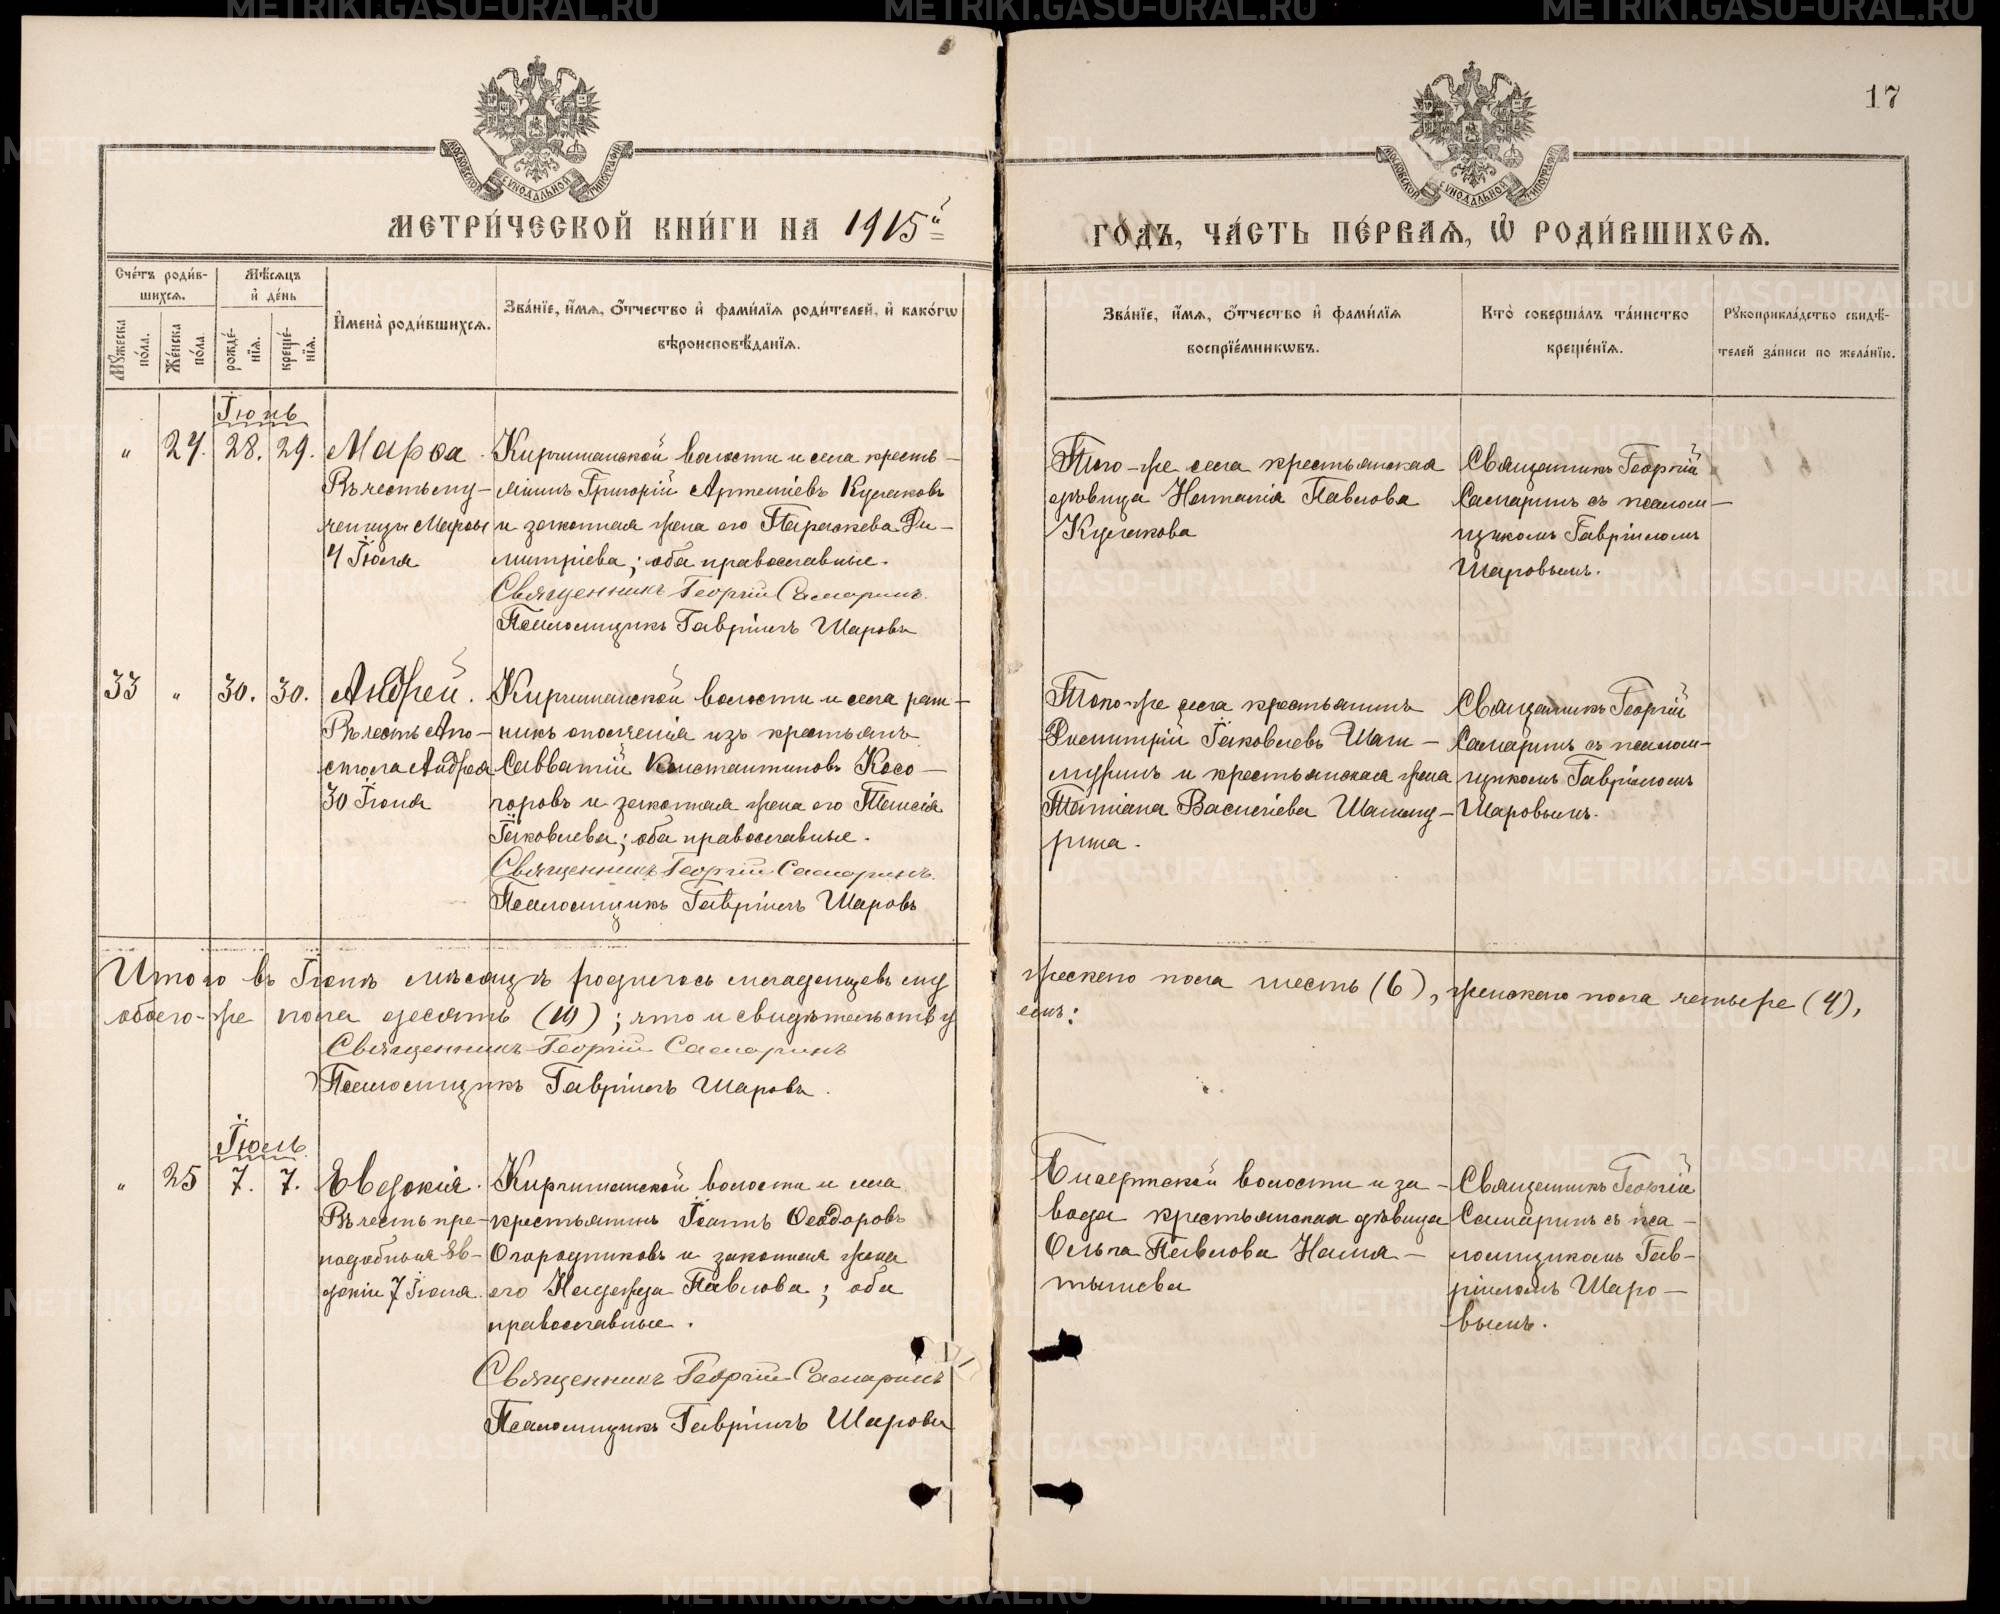 17
МОСКОВСКОЙ СѴНОДАЛЬНОЙ ТИПОГРАФІИ
МОСКОВСКОЙ СѴНОДАЛЬНОЙ ТИПОГРАФІИ
МЕТРИ́ЧЕСКОЙ КНИ́ГИ НА 1915й
ГО́ДЪ, ЧА́СТЬ ПЕ́РВАЯ, Ѡ РОДИ́ВШИХСЯ.
Сче́тъ роди́в-
шихся.
Мꙋжеска по́ла.
Же́нска по́ла.
Мѣ́сяцъ
и҆ де́нь
рожде́-
нїя.
креще́-
нїя.
И҆мена̀ роди́вшихся.
Зва́нїе, и҆́мя, ѻ҆́тчество и҆ фами́лїя роди́телей, и҆ како́гѡ
вѣроисповѣ́данїя.
Зва́нїе, и҆́мя, ѻ҆́тчество и҆ фами́лїя
воспрїе́мникѡвъ.
Кто̀ соверша́лъ та́инство
креще́нїя.
Рꙋкоприкла́дство свидѣ́-
телей за́писи по жела́нїю.
Іюнь
" 24. 28. 29.
Марѳа.
Въ честь му-
ченицы Марѳы
4 Іюля
Киргишанской волости и села кресть-
янинъ Григорій Артеміевъ Кулаковъ
и законная жена его Параскева Ди-
митріева; оба православные.
Священникъ Георгій Самаринъ.
Псаломщикъ Гавріилъ Шаровъ
Того-же села крестьянская
дѣвица Наталія Павлова
Кулакова
Священникъ Георгій
Самаринъ съ псалом-
щикомъ Гавріиломъ
Шаровымъ.
33 " 30. 30.
Андрей.
Въ честь Апо-
стола Андрея
30 Іюня
Киргишанской волости и села рат-
никъ ополченія изъ крестьянъ
Савватій Константиновъ Косо-
горовъ и законная жена его Таисія
Іаковлева; оба православные.
Священникъ Георгій Самаринъ.
Псаломщикъ Гавріилъ Шаровъ
Того-же села крестьянинъ
Димитрій Іаковлевъ Шаш-
муринъ и крестьянская жена
Татіана Василіева Шашму-
рина.
Священникъ Георгій
Самаринъ съ псалом-
щикомъ Гавріиломъ
Шаровымъ.
Итого въ Іюнѣ мѣсяцѣ родилось младенцевъ му
жескаго пола шесть (6), женскаго пола четыре (4),
обоего-же пола десять (10); что и свидѣтельству
емъ:
Священникъ Георгій Самаринъ
Псаломщикъ Гавріилъ Шаровъ.
Іюль.
" 25 7. 7.
Евдокія.
Въ честь пре-
подобныя Ев-
докіи 7 Іюля.
Киргишанской волости и села
крестьянинъ Іоаннъ Ѳеодоровъ
Огородниковъ и законная жена
его Надежда Павлова; оба
православные.
Священникъ Георгій Самаринъ
Псаломщикъ Гавріилъ Шаровъ
Бисертской волости и за-
вода крестьянская дѣвица
Ольга Павлова
Священникъ Георгій
Самаринъ съ пса-
ломщикомъ Гав-
ріиломъ Шаро-
вымъ.
METRIKI.GASO-URAL.RU